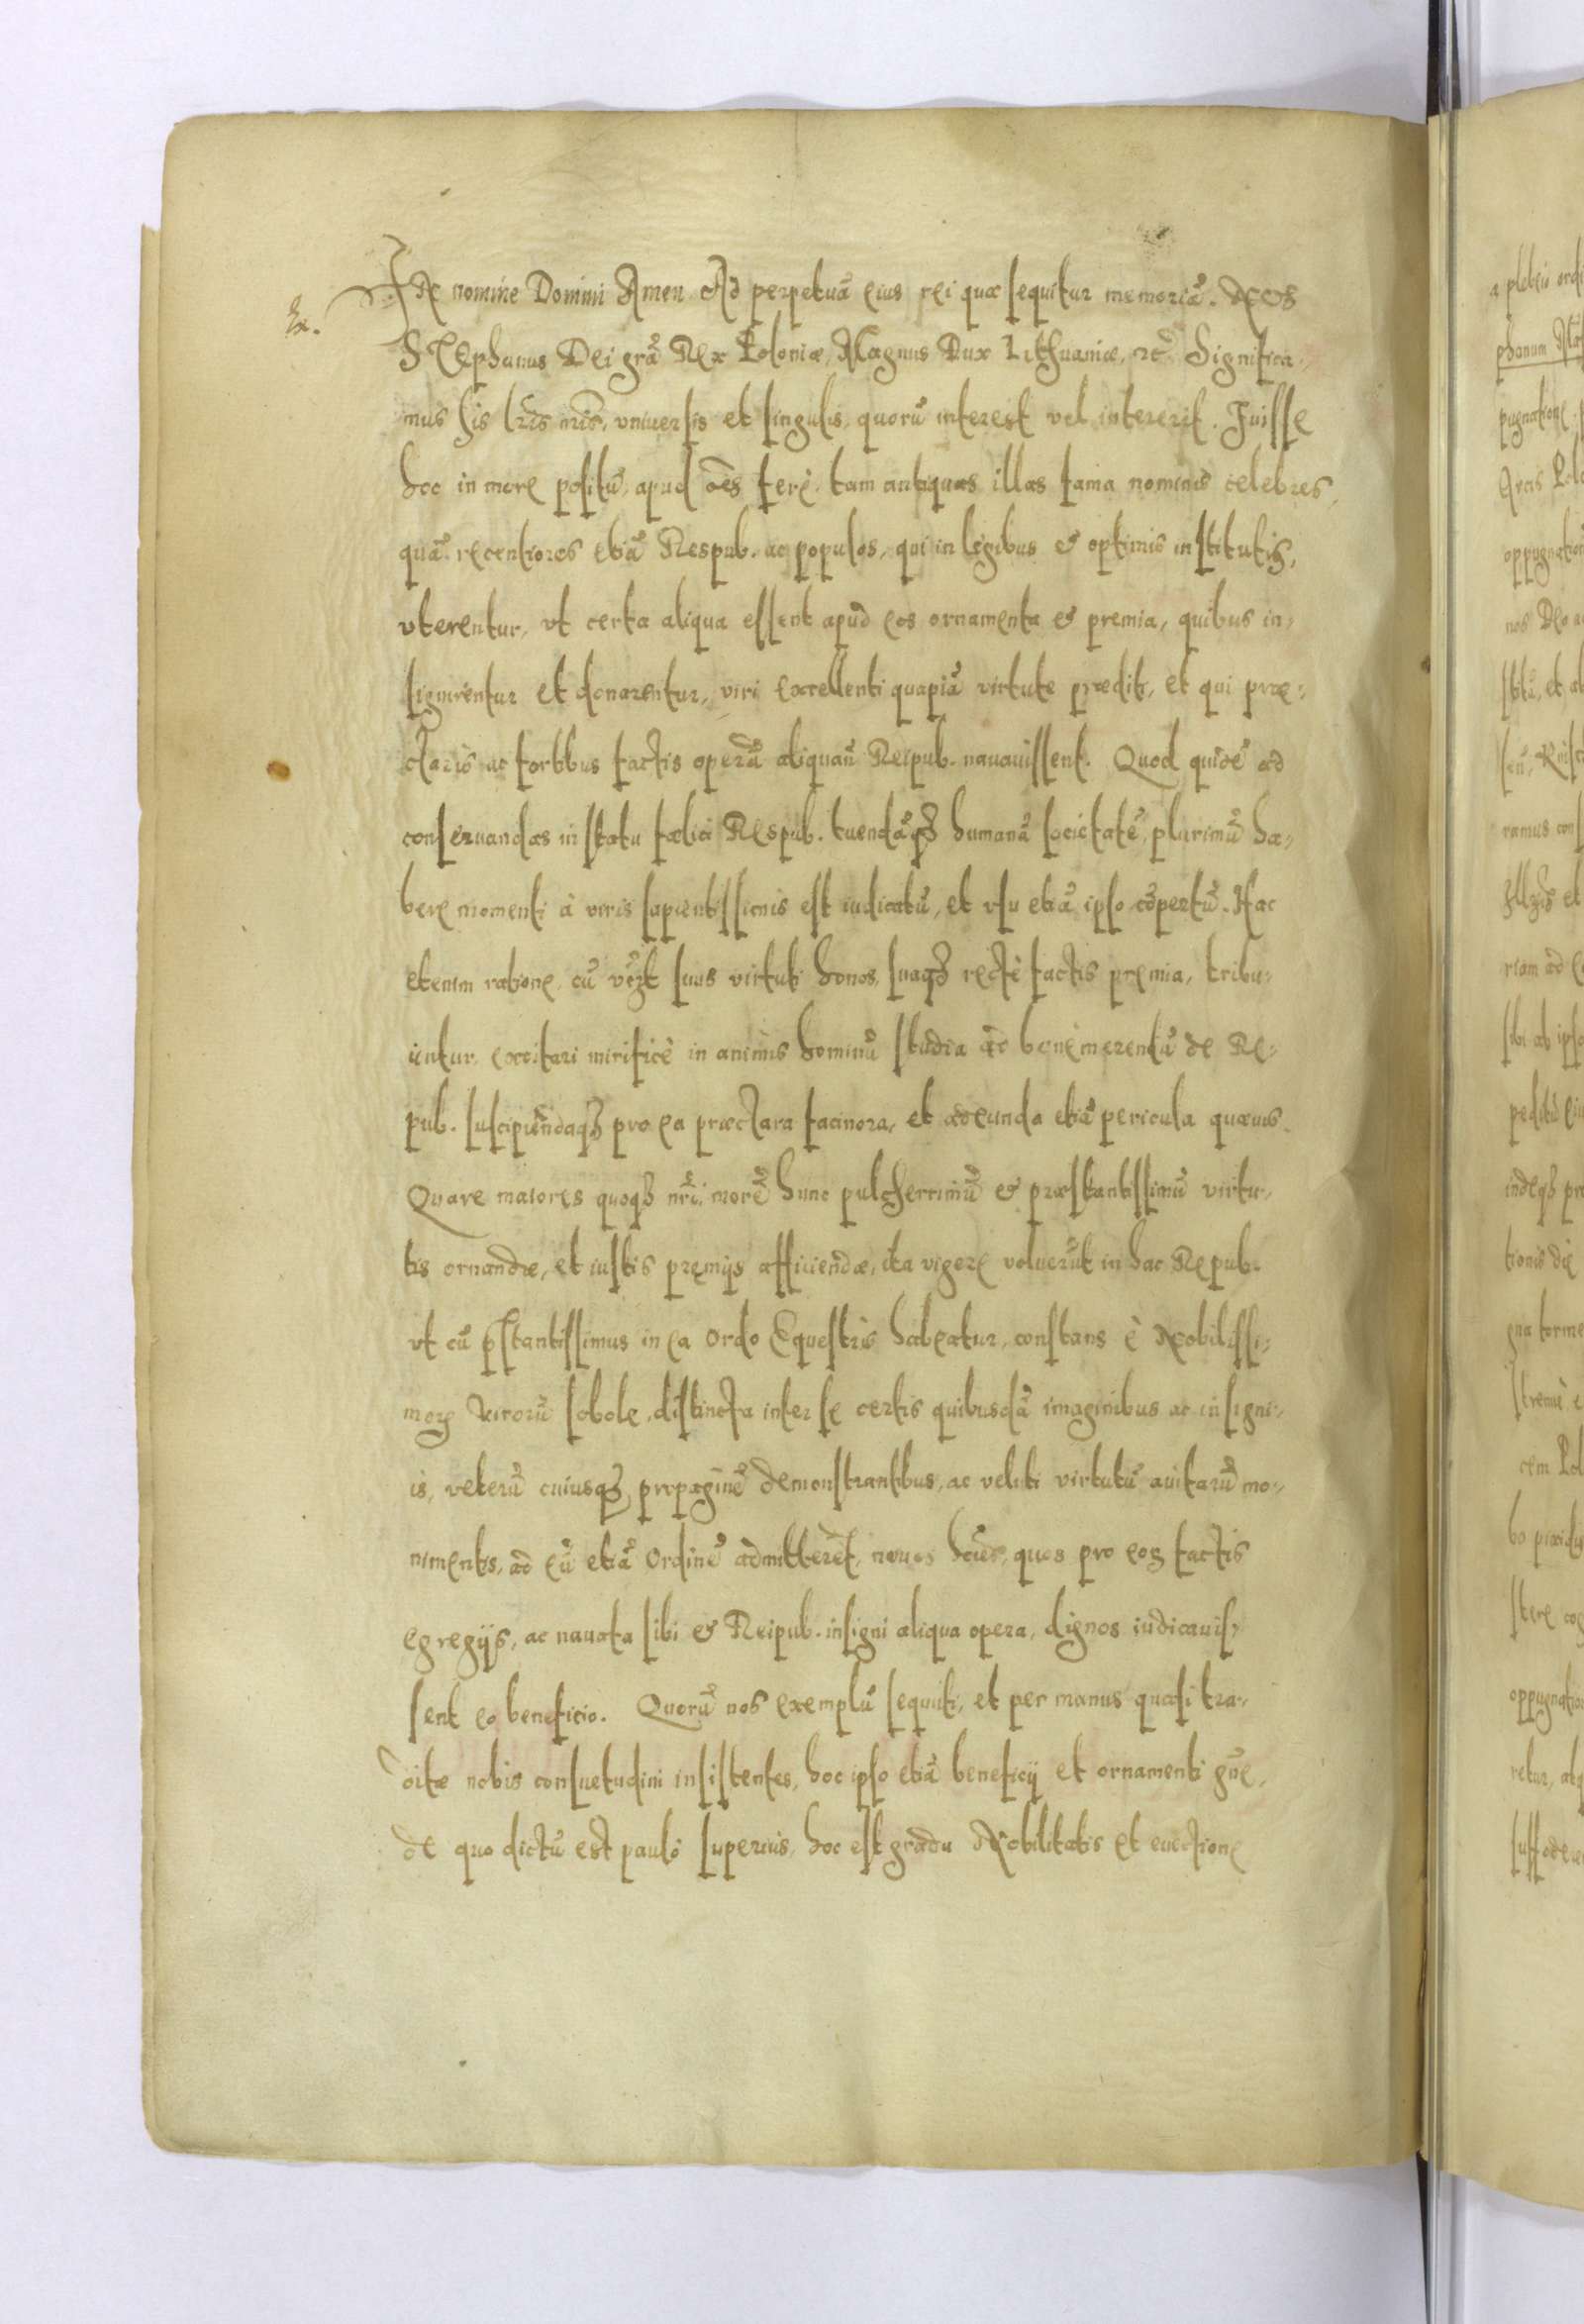 Ex.
In nomine Domini Amen Ad perpetuā eius rei quæ sequitur memoriā. Nos
Stephanus Dei grā Rex Poloniæ, Magnus Dux Lithuaniæ, etc̄ Significa-
mus his lr̄is nr̄is, vniuersis et singulis quorū interest vel intererit. Fuisse
hoc in more positū, apud oēs ferè, tam antiquas illas fama nominis celebres,
quā recentiores etiā Respub. ac populos, qui in legibus & optimis institutis,
vterentur, vt certa aliqua essent apud eos ornamenta & premia, quibus in-
signirentur et donarentur, viri excellenti quapiā virtute præditi, et qui præ-
claris ac fortibus factis operā aliquam̄ Reipub. nauauissent. Quod quidē ad
conseruandas in statu fælici Respub. tuendāqꝫ humanā societatē, plurimū ha-
bere momenti à viris sapientissimis est iudicatū, et vsu etiā ipso cōpertū. Hac
etenim ratione, cū suus virtuti honos, suaqꝫ rectè factis premia, tribu-
untur, excitari mirificè in animis hominū studia ad benemerentū de Re-
pub. suscipiendaqꝫ pro ea præclara facinora, et adeunda etiā pericula quæuis.
Quare maiores quoqꝫ nr̄i, morē hunc pulcherrimū & præstantissimū virtu-
tis ornandæ, et iustis premijs afficiendæ, ita vigere voluerūt in hac Repub.
vt cū p̄stantissimus in ea Ordo Equestris habeatur, constans è Nobilissi-
moꝝ virorū sobole, distincta inter se certis quibusdā imaginibus ac insigni-
is, veterū cuiusqꝫ propaginē demonstrantibus, ac veluti virtutū auitarū mo-
nimentis, ad eū etiā Ordinē admitterēt, nouos hoīes, quos pro eoꝝ factis
egregijs, ac nauata sibi & Reipub. insigni aliqua opera, dignos iudicauis-
sent eo beneficio. Quorū nos exemplū sequuti, et per manus quasi tra-
ditæ nobis consuetudini insistentes, hoc ipso etiā beneficij et ornamenti gn̄e,
de quo dictū est paulò superius, hoc est gradu Nobilitatis et euectione